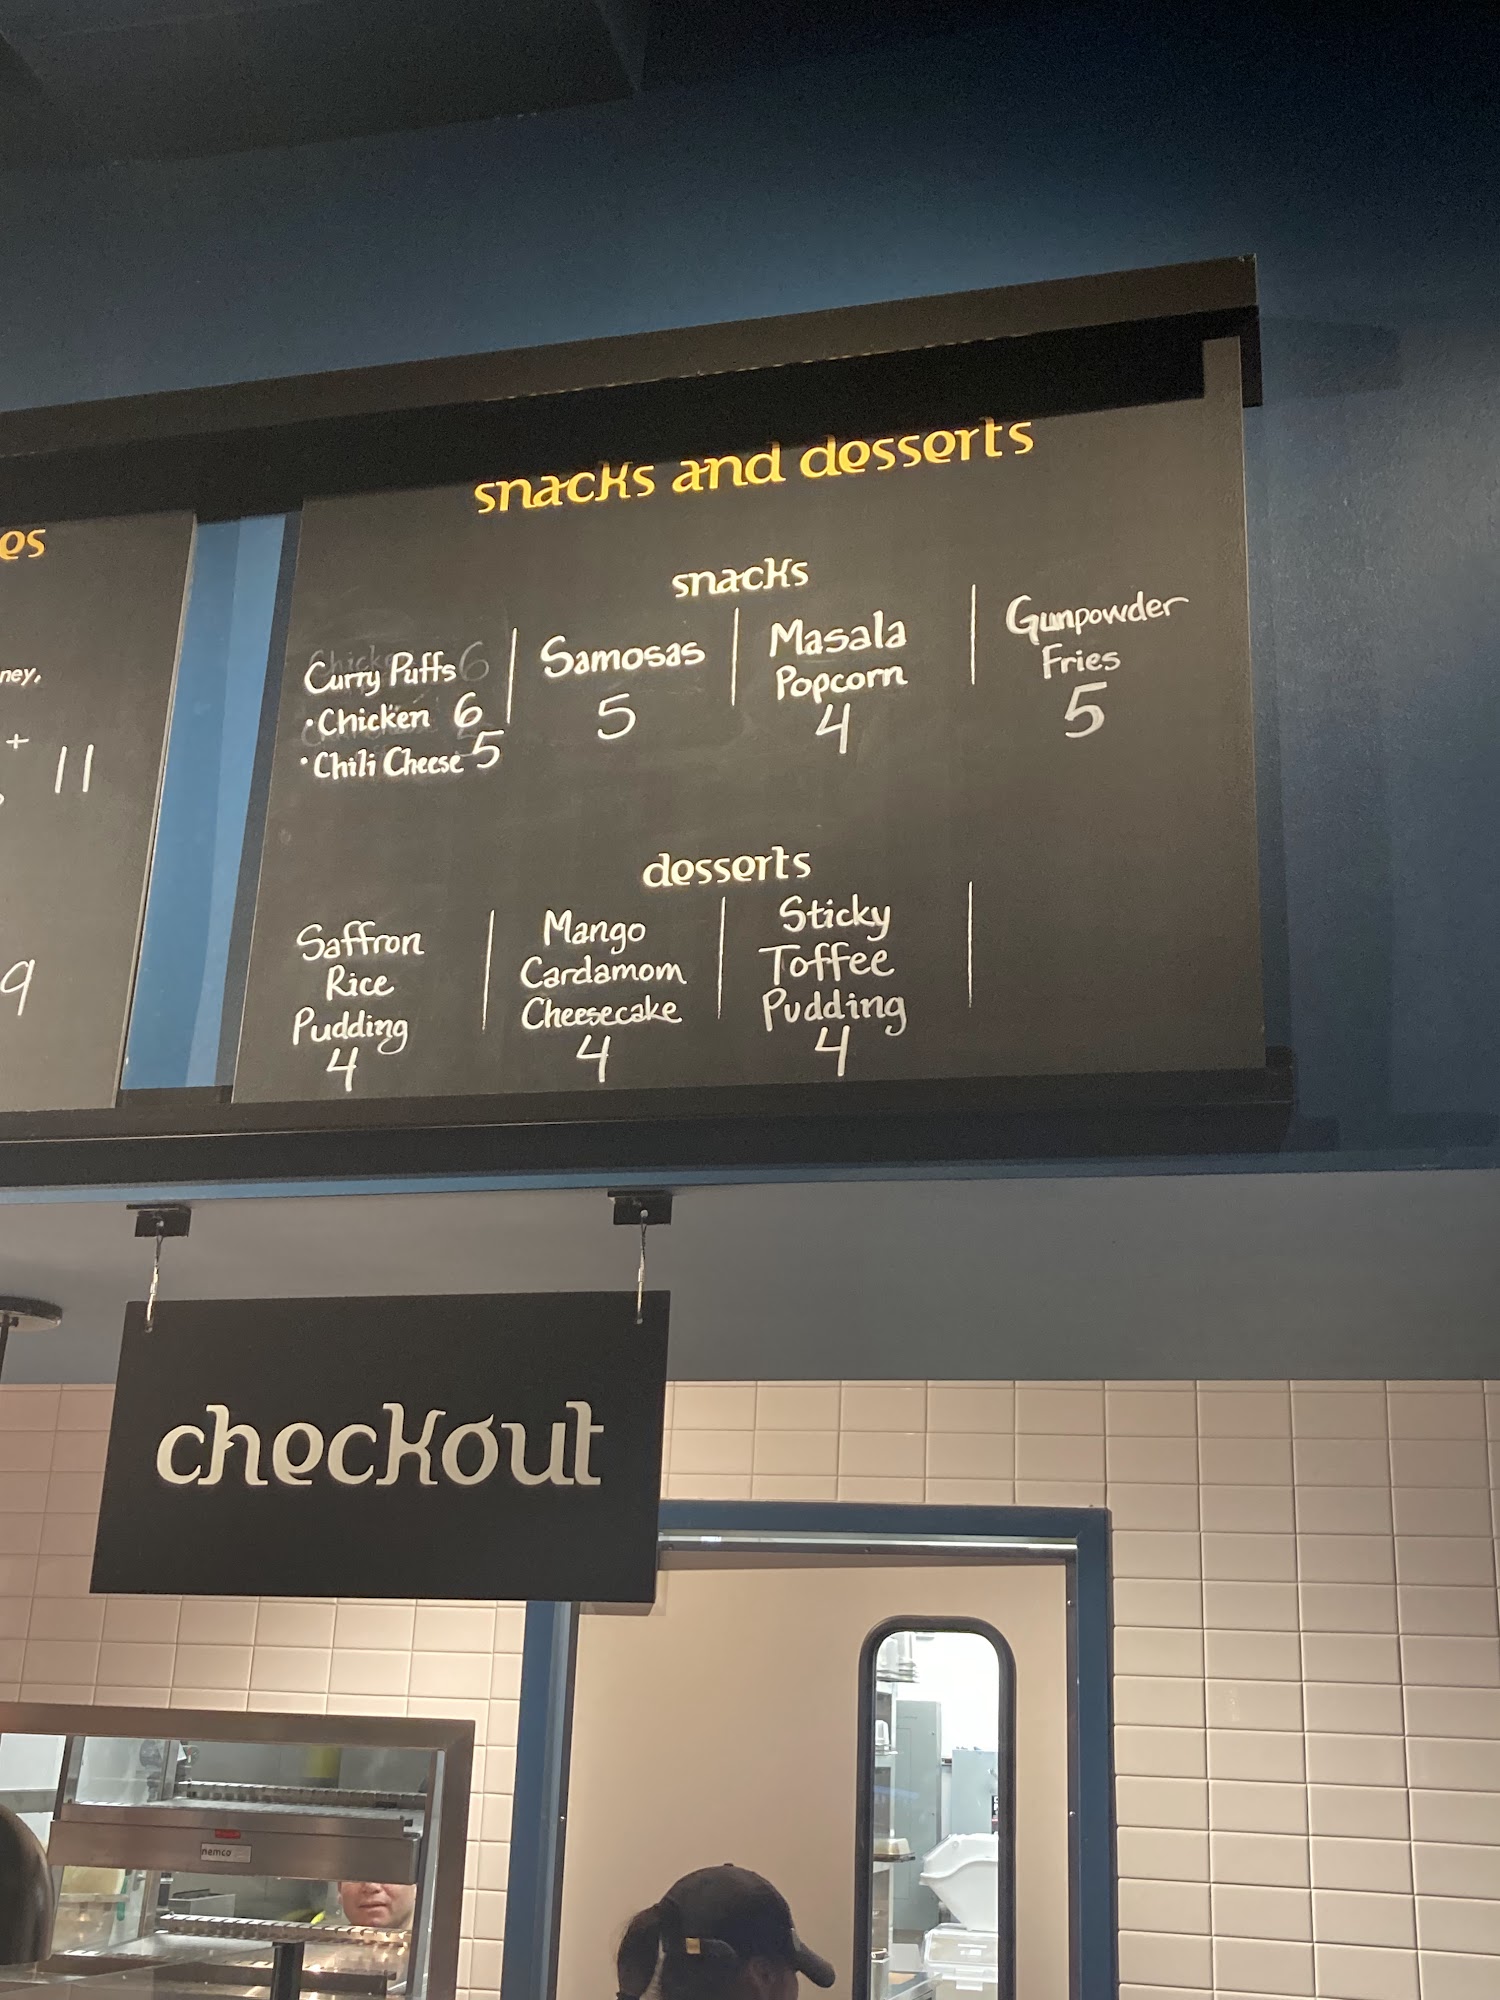 es
ney,
+
11
9
snacks and desserts
snacks
Curry Puffs
·Chicken 6
·Chili Cheese 5
Samosas
5
Masala
Popcorn
4
Gunpowder
Fries
5
desserts
Saffron
Rice
Pudding
4
Mango
Cardamom
Cheesecake
4
Sticky
Toffee
Pudding
4
checkout
nemco